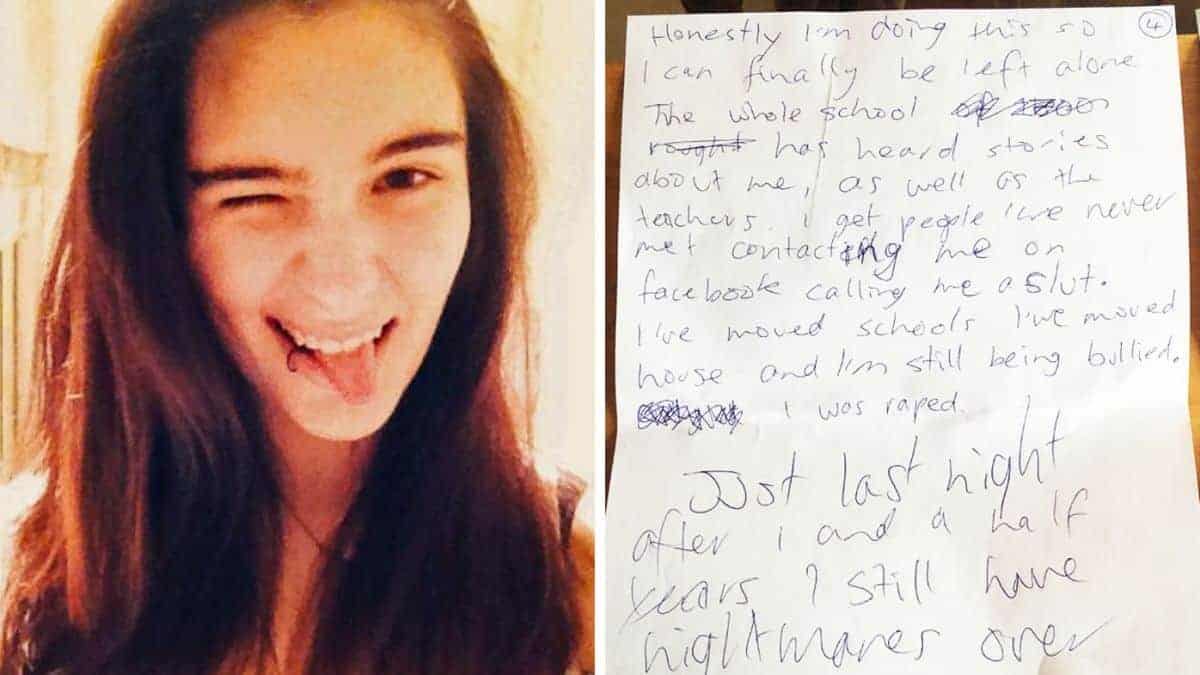 Honestly I'm doing this so 4
I can finally be left alone
The whole school
rought has heard stories
about me, as well as the
teachers. I get people I've never
met contacting me on
facebook calling me a slut.
I've moved schools I've moved
house and I'm still being bullied.
I was raped.
Just last night
after 1 and a half
years I still have
nightmares over